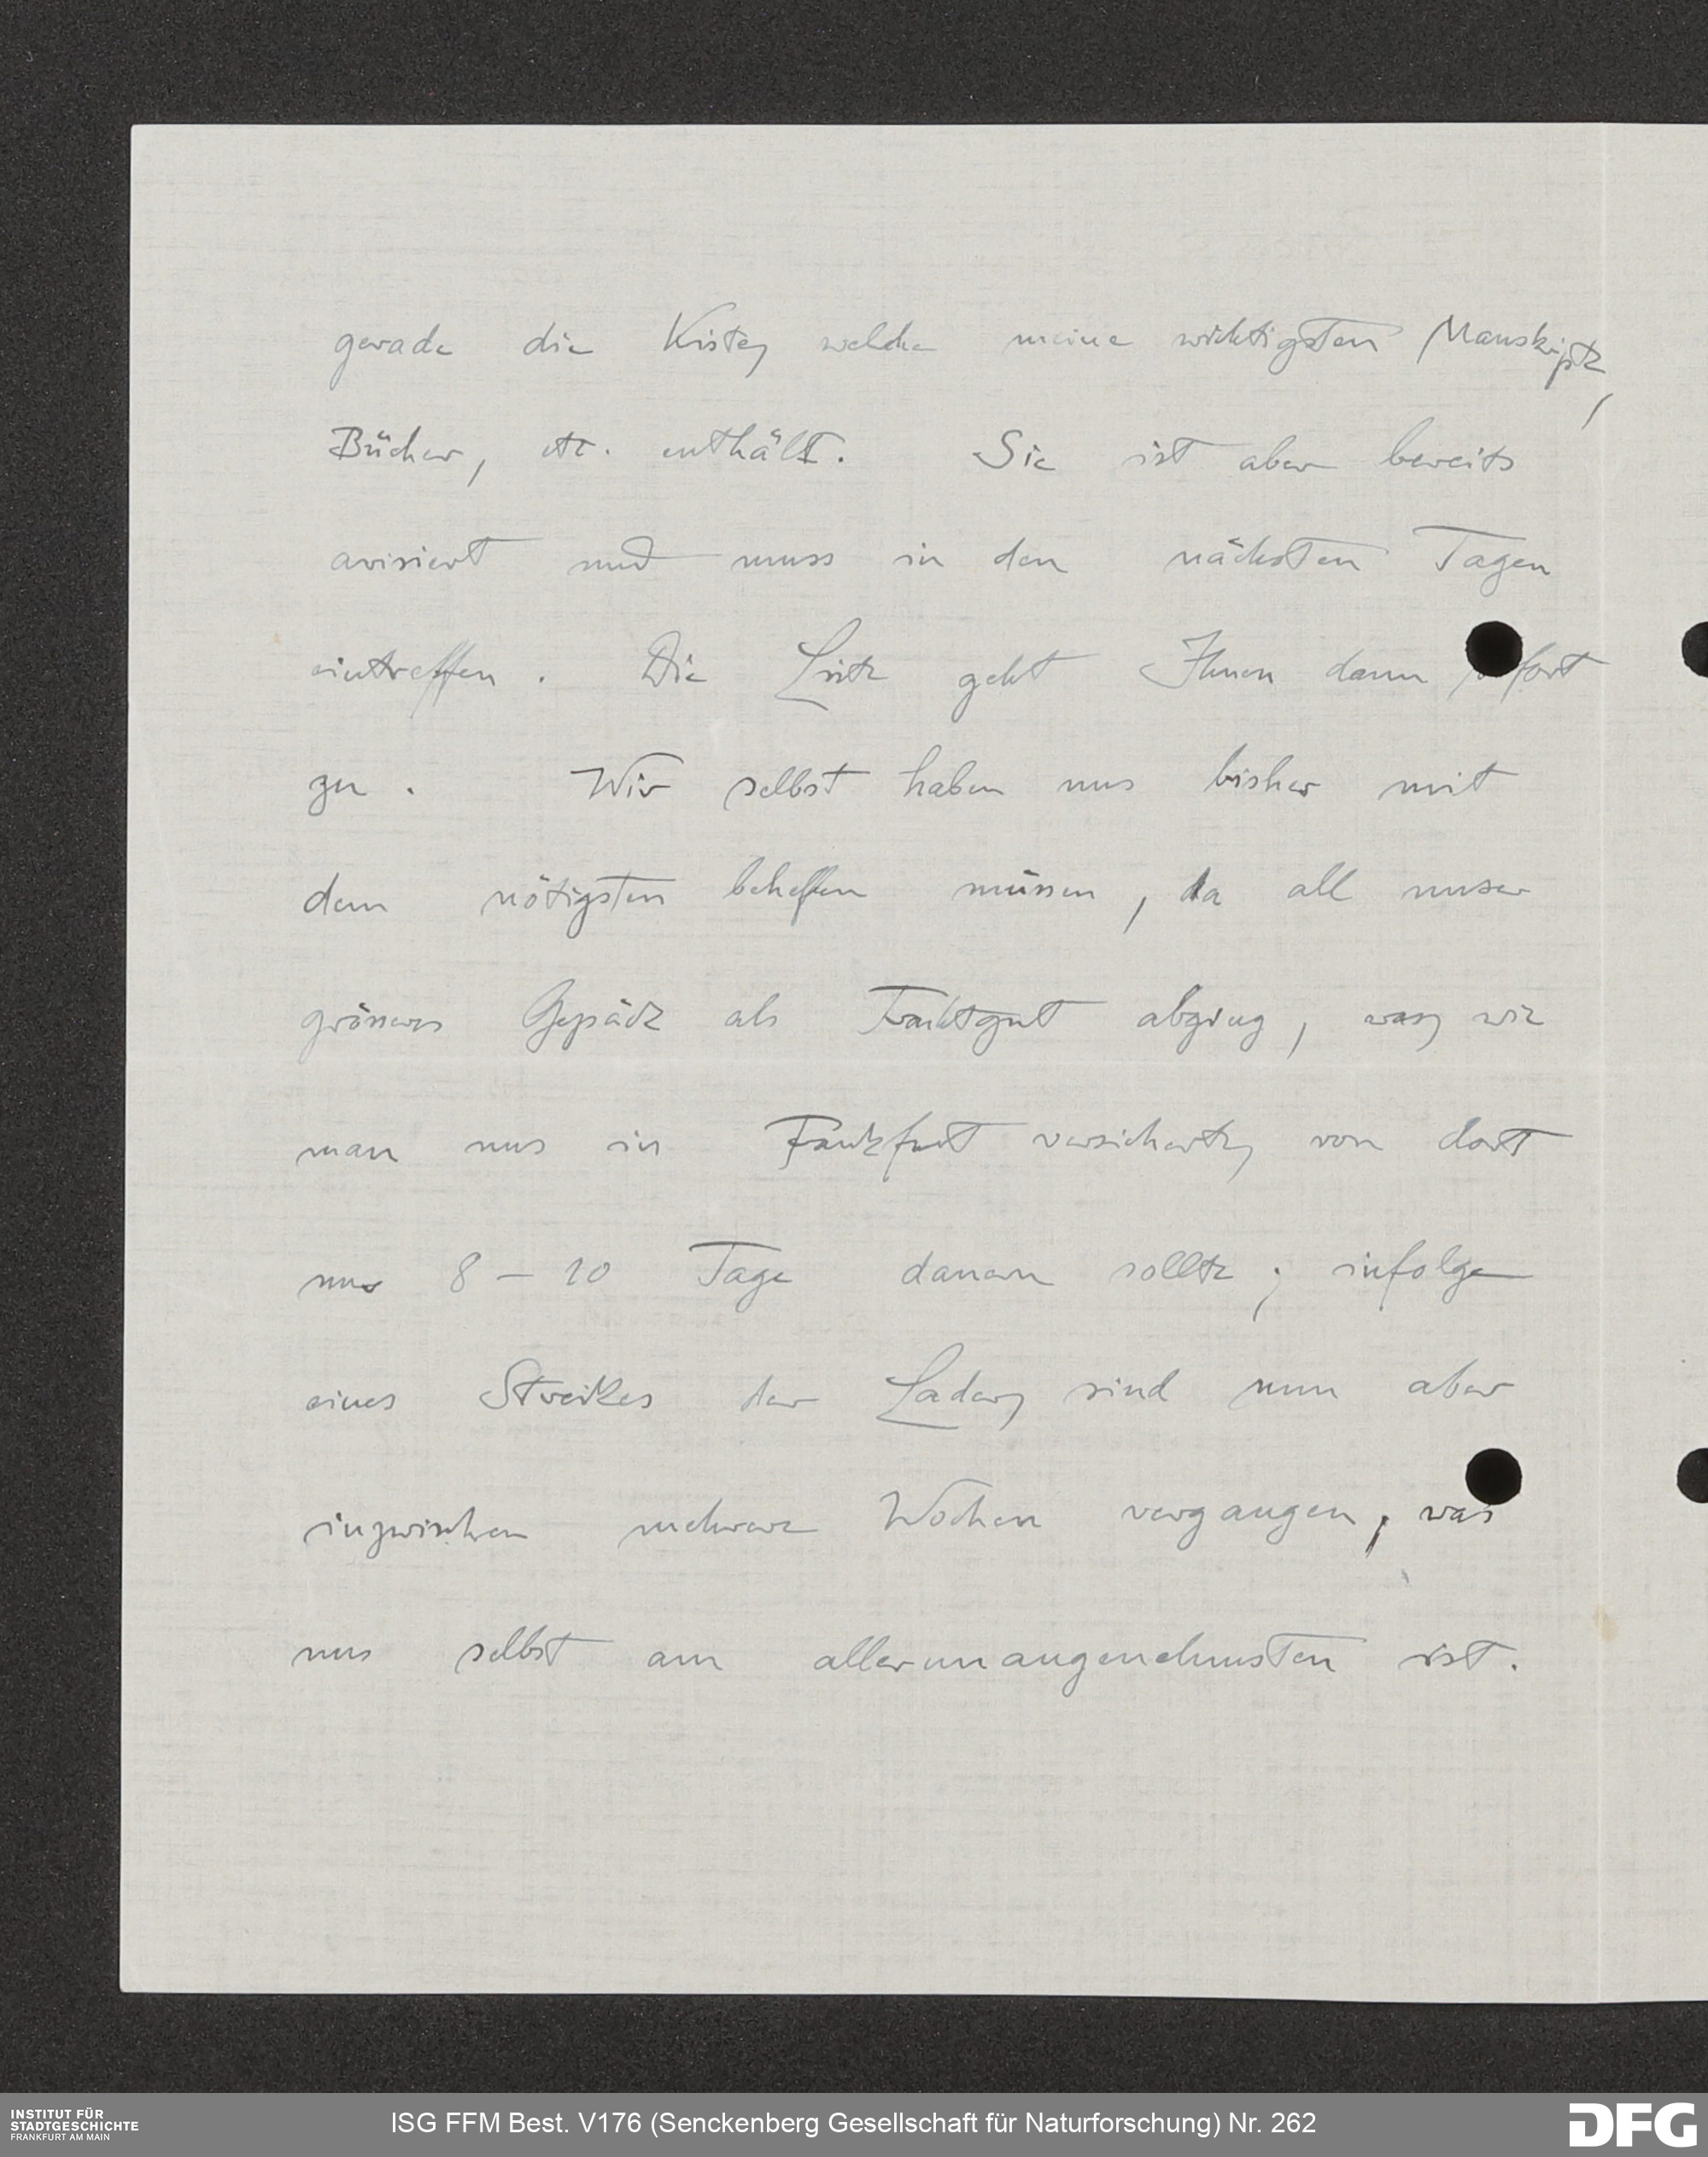 gerade die Kiste, welche meine wichtigsten Manskripte,
Bücher, etc. enthält. Sie ist aber bereits
avisiert und muss in den nächsten Tagen
eintreffen. Die Liste geht Ihnen dann sofort
zu. Wir selbst haben uns bisher mit
dem nötigsten behelfen müssen, da all unser
grösseres Gepäck als Frachtgut abging, was, wie
man uns in Frankfurt versicherte, von dort
nur 8 – 10 Tage dauern sollte; infolge
eines Streikes der Lader, sind nun aber
inzwischen mehrere Wochen vergangen, was
uns selbst am allerunangenehmsten ist.
INSTITUT FÜR
STADTGESCHICHTE
FRANKFURT AM MAIN
ISG FFM Best. V176 (Senckenberg Gesellschaft für Naturforschung) Nr. 262
DFG